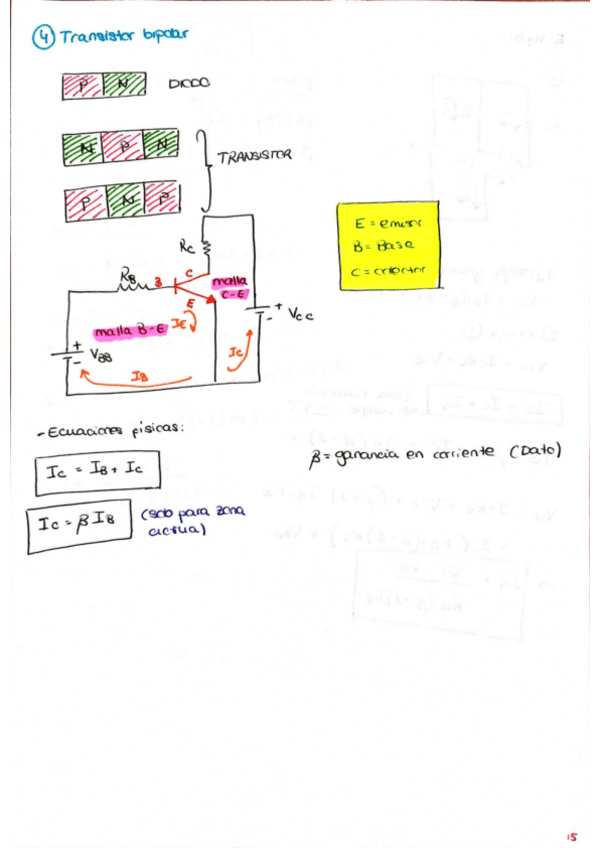 4 Transistor bipolar
P N DIODO
N P N
TRANSISTOR
P N P
E = emisor
B = Base
C = colector
RC
RB
B
C
E
malla
C-E
malla B-E
IE
+
-
VCC
+
-
VBB
IB
IC
- Ecuaciones físicas:
IC = IB + IC
β = ganancia en corriente (Dato)
IC = β IB
(solo para zona
activa)
15